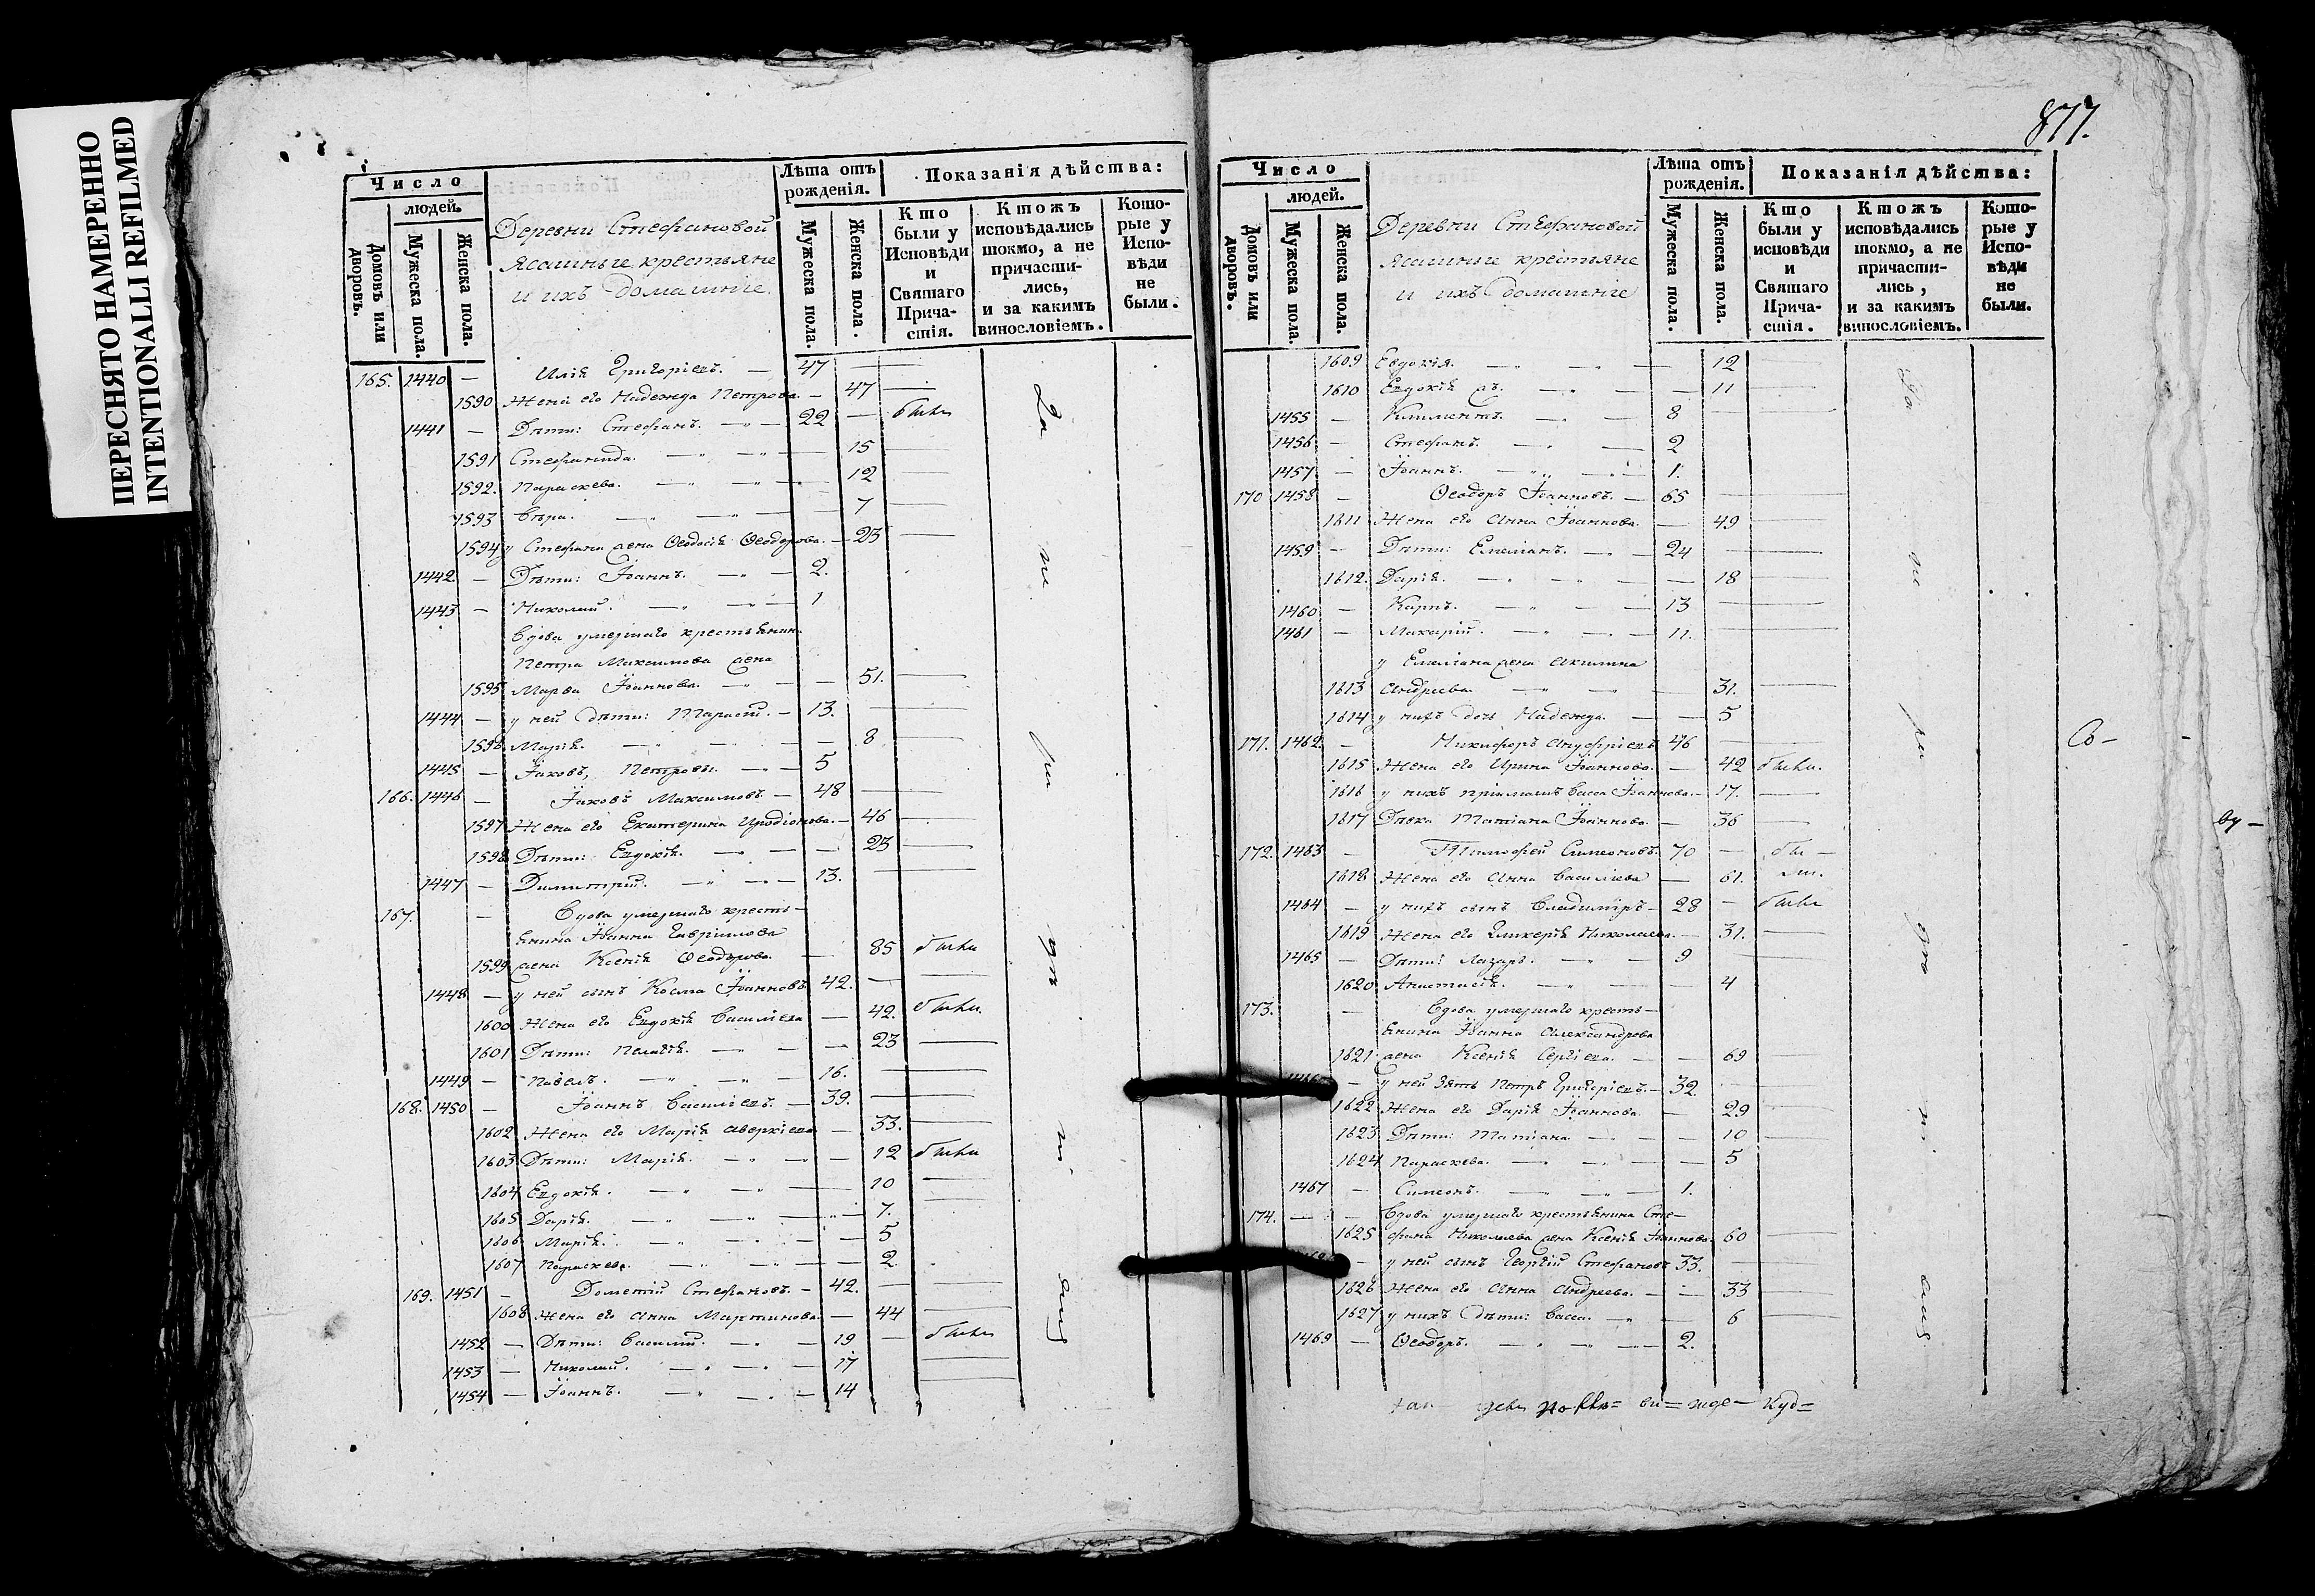 ПЕРЕСНЯТО НАМЕРЕННО
INTENTIONALLI REFILMED
Число
людей.
Домовъ или дворовъ.
Мужеска пола.
Женска пола.
Деревни Стефановой
Ясашные крестьяне
и ихъ домашніе
Лѣта отъ рожденія.
Мужеска пола.
Женска пола.
Показанія дѣйства:
Кто были у Исповѣди и Святаго Причастія.
Ктожъ исповѣдались токмо, а не причастились, и за какимъ винословіемъ.
Которые у Исповѣди не были.
165. 1440 — Илія Григоріевъ. — 47
1590 Жена его Надежда Петрова. — 47
1441 — Дѣти: Стефанъ. — 22 — были
1591 Стефанида. — 15
1592. Параскева. — 12
1593 Вѣра. — 7
1594 у Стефана жена Ѳеодосія Ѳеодорова. — 25
1442 — Дѣти: Іоаннъ. — 2.
1443 — Николай. — 1
Вдова умершаго крестьянина
Петра Максимова жена
1595 Марѳа Іоаннова. — 51.
1444 — у ней дѣти: Тарасій. — 13.
1596 Марія. — 8
1445 — Іаковъ, Петровы. — 5
166. 1446 — Іаковъ Максимовъ — 48
1597 Жена его Екатерина Иродіонова. — 46
1598 Дѣти: Евдокія. — 25
1447 — Димитрій. — 13.
167. — Вдова умершаго кресть—
янина Іоанна Гаврилова
1599 жена Ксенія Ѳеодорова — 85 были
1448 — у ней сынъ Косма Іоанновъ 42. —
1600 Жена его Евдокія Васильева — 42. были.
1601 Дѣти: Пелагія. — 23
1449 — Павелъ. — 16.
168. 1450 — Іоаннъ Васильевъ. — 39.
1602 Жена его Марія Аверкіева — 33.
1603 Дѣти: Марія. — 12 были
1604 Евдокія. — 10
1605 Дарія. — 7.
1606 Марія. — 5
1607 Параскева. — 2.
169. 1451 — Дометій Стефановъ. — 42.
1608 Жена его Анна Мартинова. — 44
1452 — Дѣти: Василій. — 19 — были
1453 — Николай. — 17
1454 — Іоаннъ. — 14
877.
Число
людей.
Домовъ или дворовъ.
Мужеска пола.
Женска пола.
Деревни Стефановой
Ясашные крестьяне
и ихъ домашніе
Лѣта отъ рожденія.
Мужеска пола.
Женска пола.
Показанія дѣйства:
Кто были у исповѣди и Святаго Причастія.
Ктожъ исповѣдались токмо, а не причастились, и за какимъ винословіемъ.
Которые у Исповѣди не были.
1609 Евдокія. — 12
1610 Евдокія — 11
1455 — Климентъ. — 8
1456 — Стефанъ. — 2
1457 — Іоаннъ. — 1.
170 1458 — Ѳеодоръ Іоанновъ. — 65
1611 Жена его Анна Іоаннова. — 49
1459 — Дѣти: Емеліанъ. — 24
1612. Дарія. — 18
1460 — Карпъ. — 13
1461 — Макарій. — 11.
у Емеліана жена Акилина
1613 Андреева. — 31.
1614 у нихъ дочь Надежда. — 5
171. 1462. — Никифоръ Ануфріевъ 46
1615 Жена его Ирина Іоаннова. — 42 были.
1616 у нихъ Васса Іоаннова. — 17.
1617 Дѣвка Татіана Іоаннова. — 36
172. 1463 — Тимоѳей Симеоновъ. 70 — бы —
1618 Жена его Анна Васильева — 61. ли.
1464 — у нихъ сынъ Владиміръ — 28 — были
1619 Жена его Гликерія Николаева. — 31.
1465 — Дѣти: Лазарь. — 9
1620 Анастасія. — 4
173. — Вдова умершаго кресть—
янина Іоанна Александрова
1621 жена Ксенія Сергіева. — 69
1466 — у ней зять Петръ Григоріевъ. — 32.
1622 Жена его Дарія Іоаннова — 29
1623 Дѣти: Татіана — 10
1624 Параскева. — 5
1467 — Симеонъ. — 1.
174. — Вдова умершаго крестьянина Сте—
1625 фана Николаева жена Ксенія Іоаннова 60
— у ней сынъ Георгій Стефановъ 33.
1626 Жена его Анна Андреева. — 33
1627 у нихъ дѣти: Васса. — 6
1469 — Ѳеодоръ. — 2.
Со—